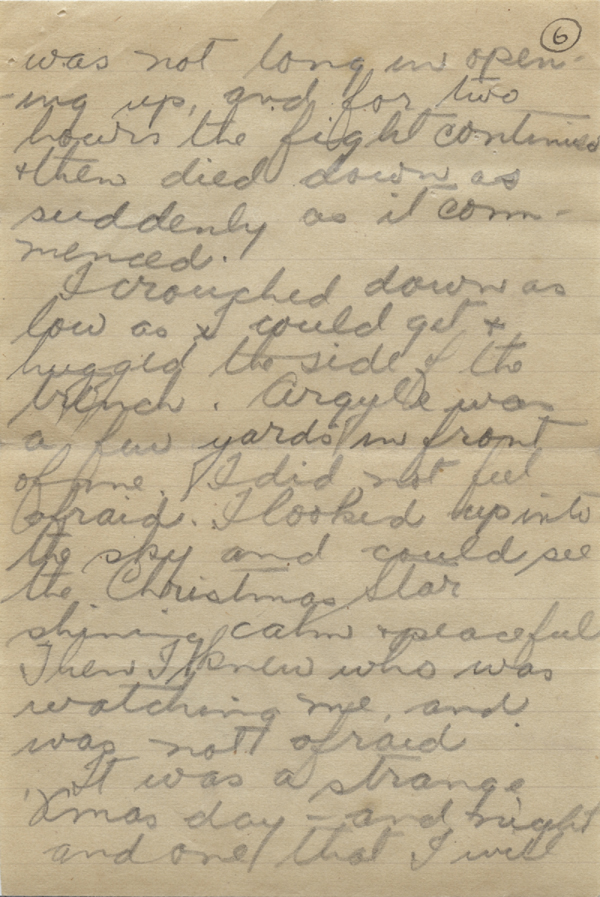 6
was not long in open-
-ing up, and for two
hours the fight continued
+ then died down as
suddenly as it com-
menced.
I crouched down as
low as I could get +
hugged the side of the
trench. Argyle was
a few yards in front
of me. I did not feel
afraid. I looked up into
the sky and could see
the Christmas Star
shining calm + peaceful
Then I knew who was
watching me, and
was not afraid.
It was a strange
Xmas day - and night
and one that I will